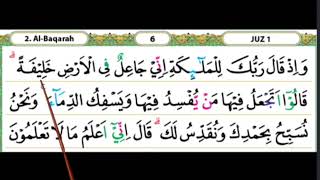 2. Al-Baqarah 6 JUZ 1
وَاِذْ قَالَ رَبُّكَ لِلْمَلٰۤىِٕكَةِ اِنِّيْ جَاعِلٌ فِى الْاَرْضِ خَلِيْفَةً ۗ
قَالُوْٓا اَتَجْعَلُ فِيْهَا مَنْ يُّفْسِدُ فِيْهَا وَيَسْفِكُ الدِّمَاۤءَ ۚ وَنَحْنُ
نُسَبِّحُ بِحَمْدِكَ وَنُقَدِّسُ لَكَ ۗ قَالَ اِنِّيْٓ اَعْلَمُ مَا لَا تَعْلَمُوْنَ